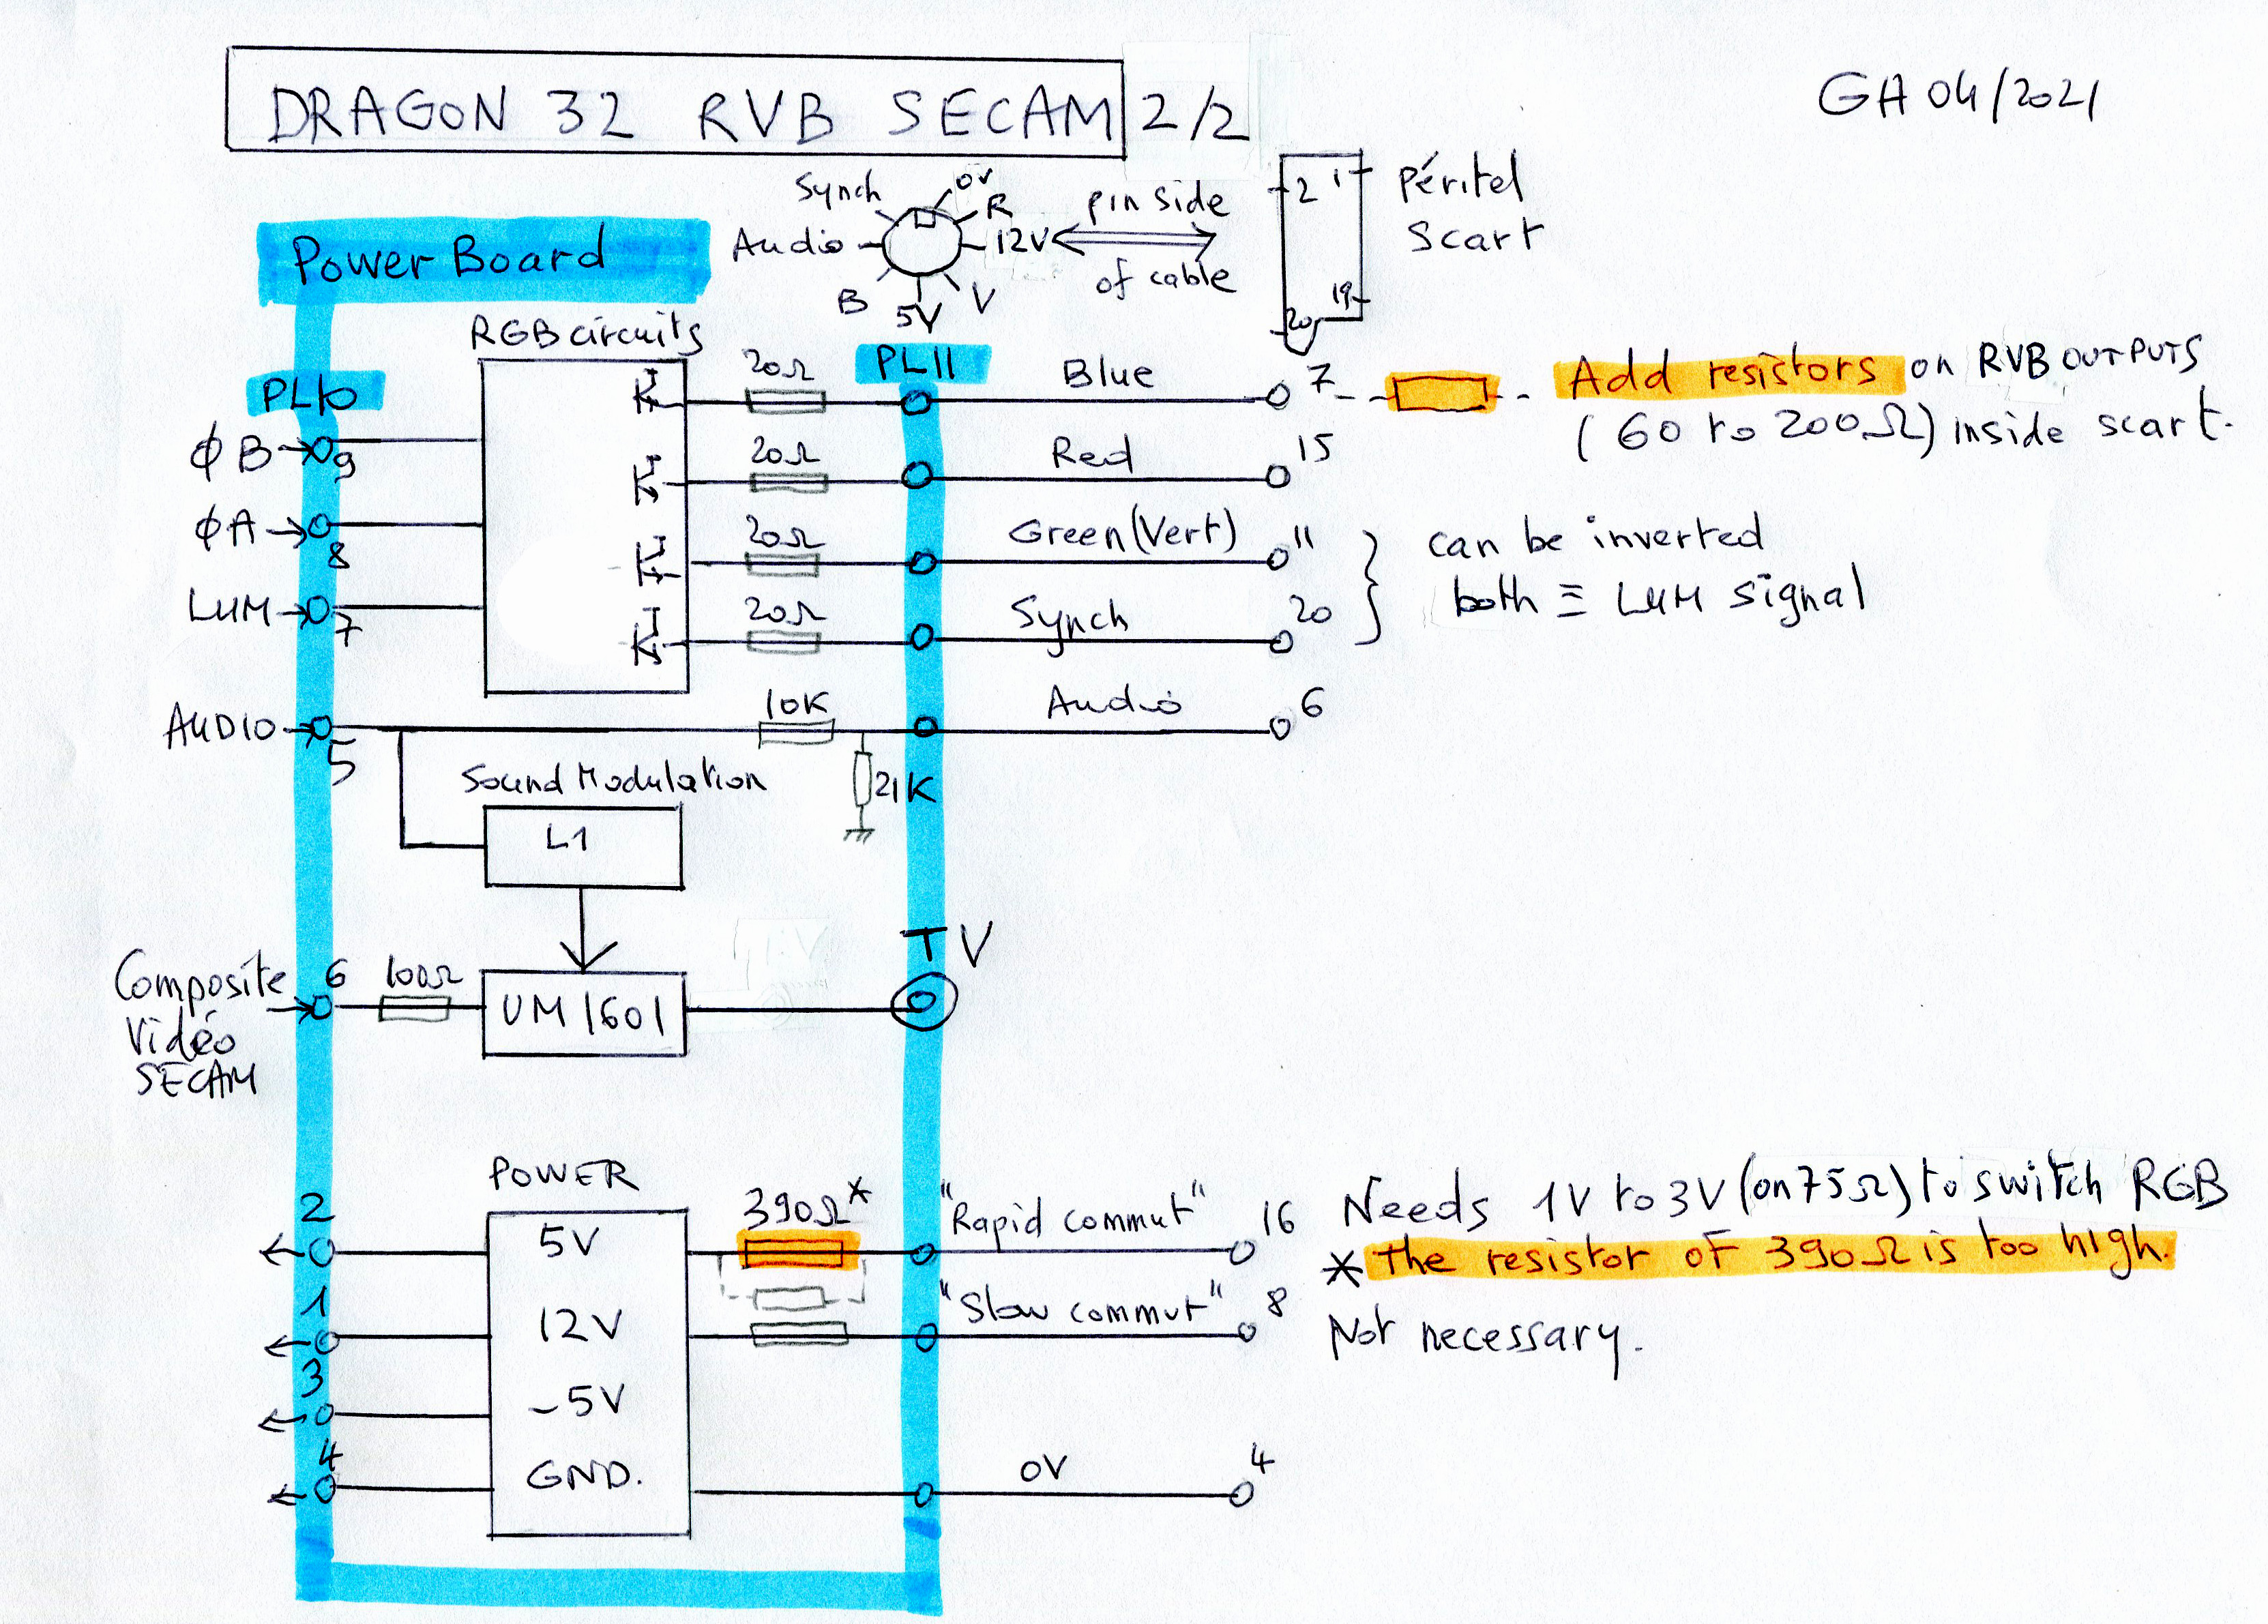 DRAGON 32 RVB SECAM 2/2
GH 04/2021
Synch
0V
R
Audio
12V
B
5V
V
pin side
of cable
2 1
19
20
Péritel
scart
Power Board
RGB circuits
PL10
PL11
20Ω
Blue
7
Add resistors on RVB OUTPUTS
(60 to 200Ω) inside scart.
ϕB
9
20Ω
Red
15
ϕA
8
20Ω
Green (Vert)
11
can be inverted
both ≡ LUM signal
LUM
7
20Ω
Synch
20
AUDIO
5
10K
Audio
6
21K
Sound Modulation
L1
TV
Composite
Vidéo
SECAM
6
100Ω
UM 1601
POWER
2
5V
390Ω*
"Rapid commut"
16
Needs 1V to 3V (on 75Ω) to switch RGB
* The resistor of 390Ω is too high.
1
12V
"Slow commut"
8
Not necessary.
3
-5V
4
GND.
0V
4